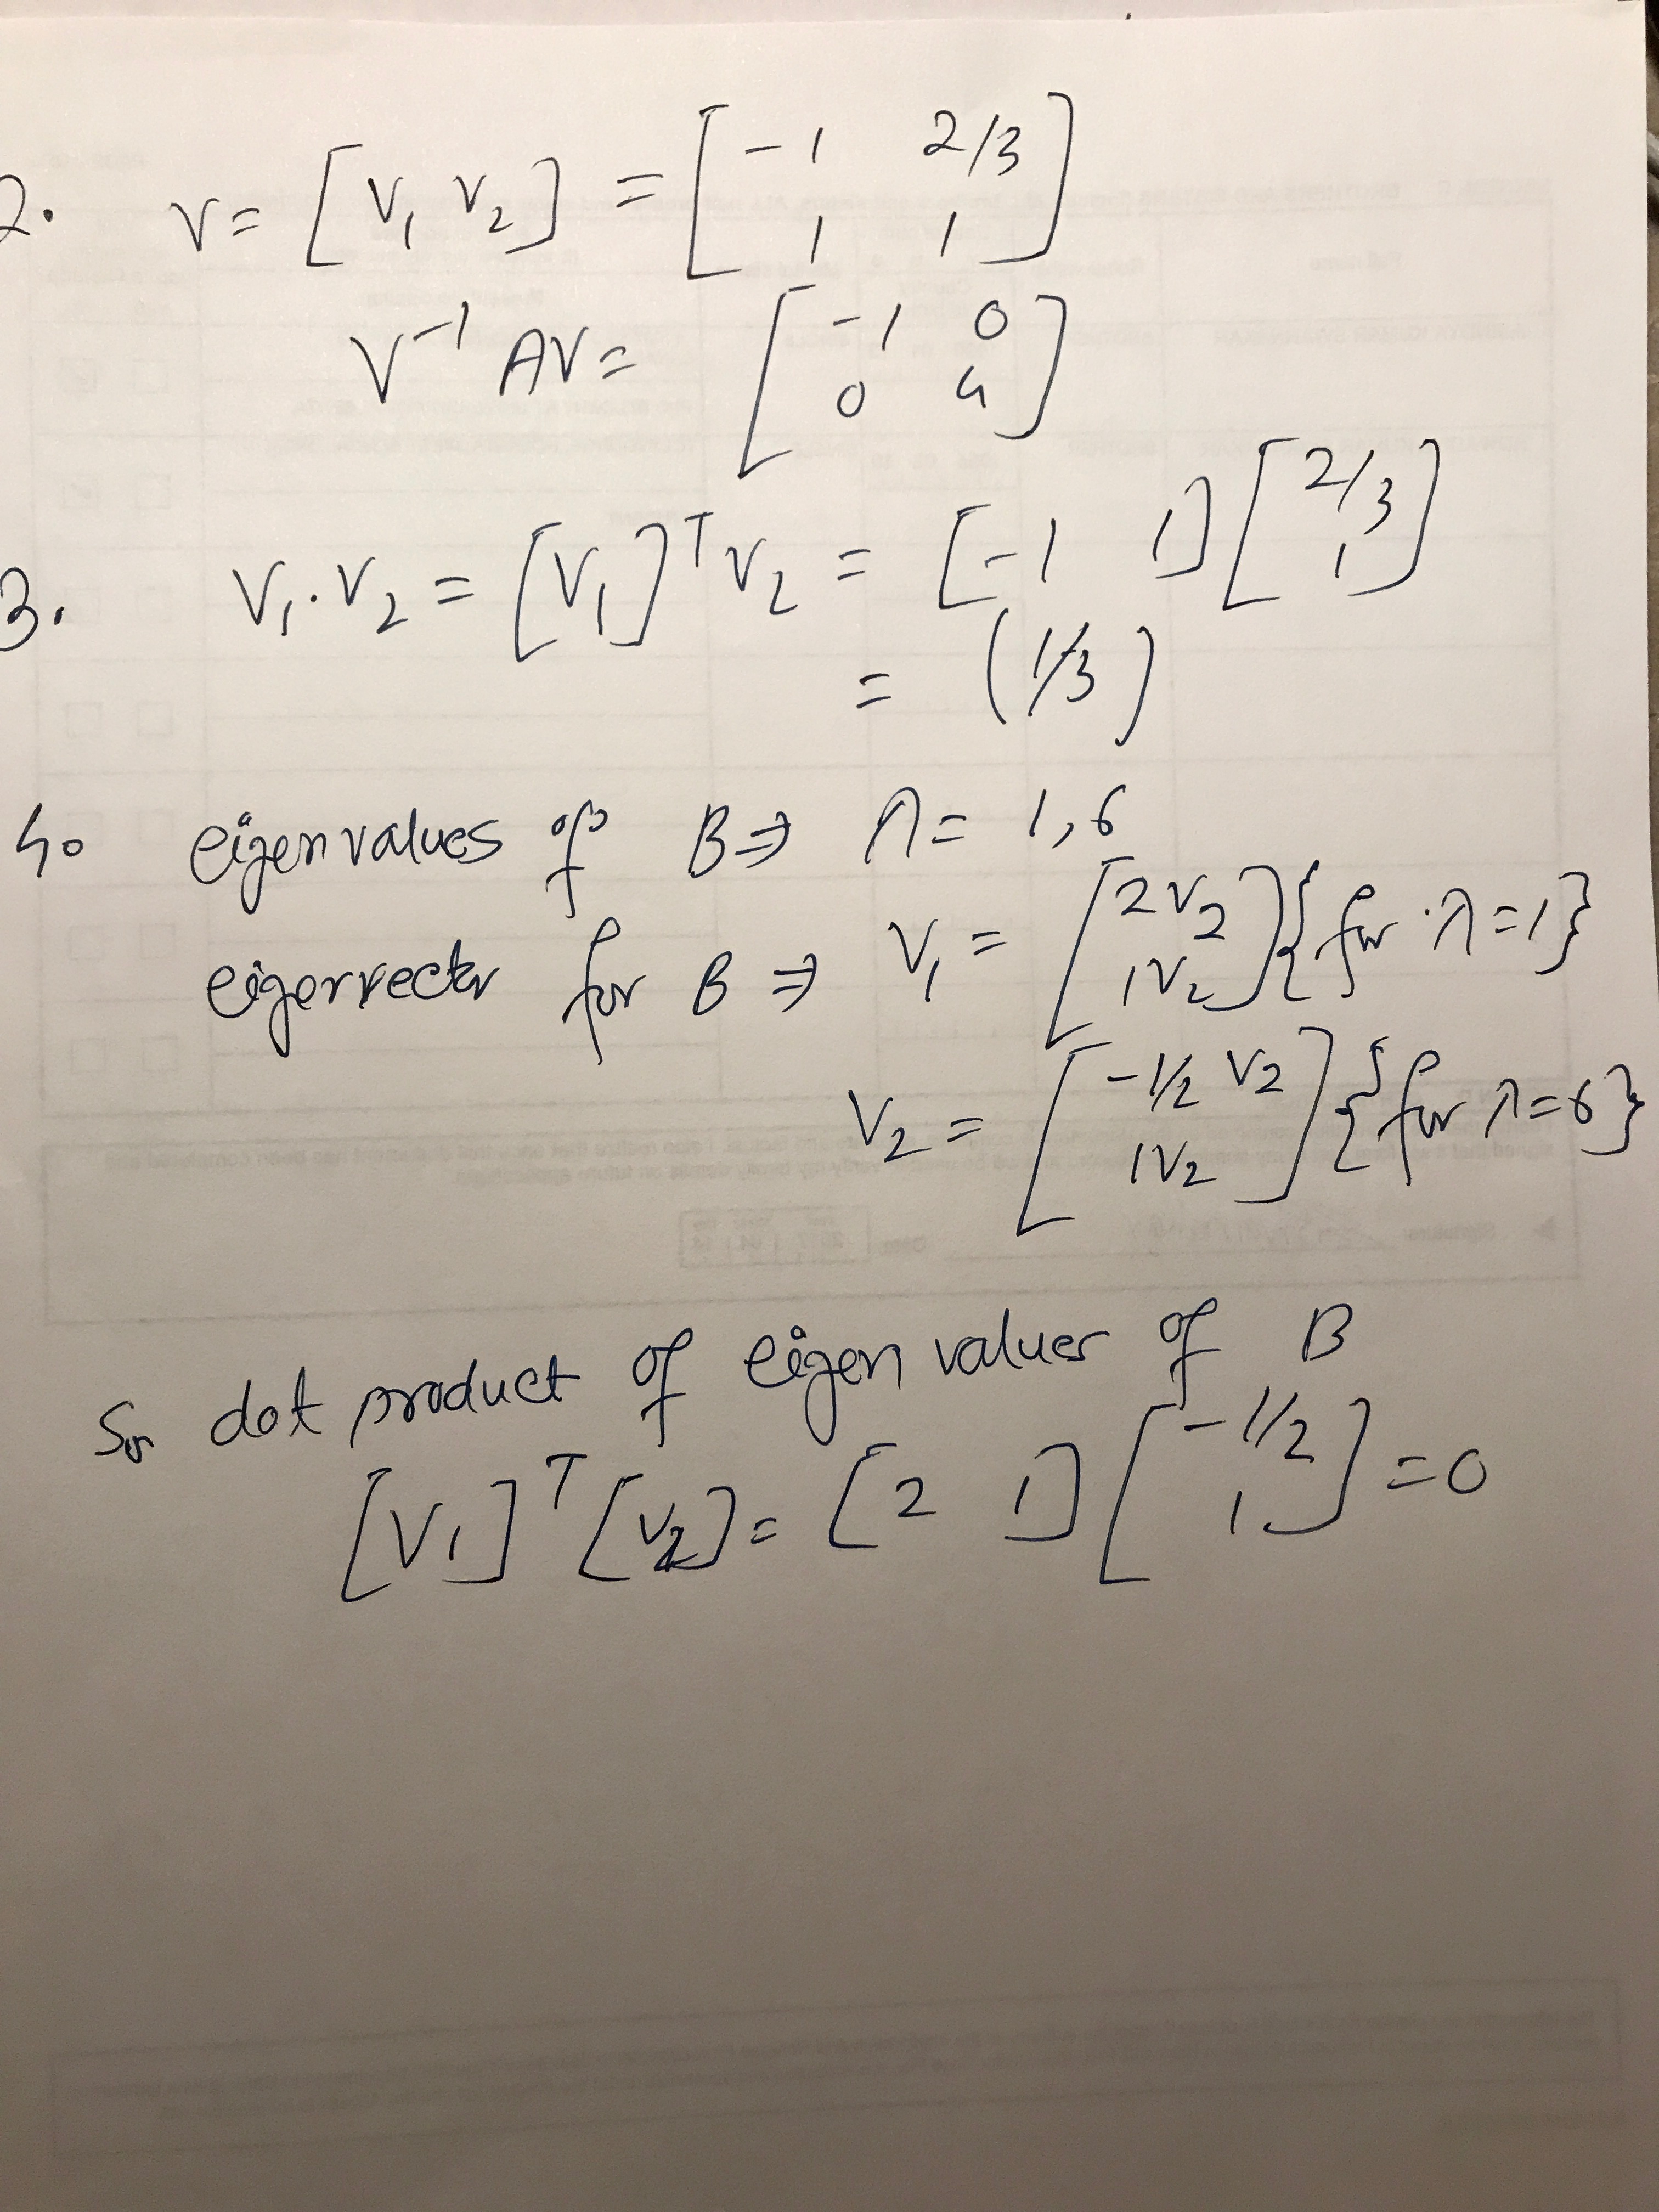 2. V = [V₁ V₂] = [-1 2/3
1 1]
V⁻¹ AV = [-1 0
0 4]
3. V₁.V₂ = [V₁]ᵀ V₂ = [-1 1] [2/3
1]
= (1/3)
4. eigenvalues of B ⇒ λ = 1, 6
eigenvector for B ⇒ V₁ = [2V₂
1V₂] {for λ=1}
V₂ = [-1/2 V₂
1V₂] {for λ=6}
So dot product of eigen values of B
[V₁]ᵀ [V₂] = [2 1] [-1/2
1] = 0